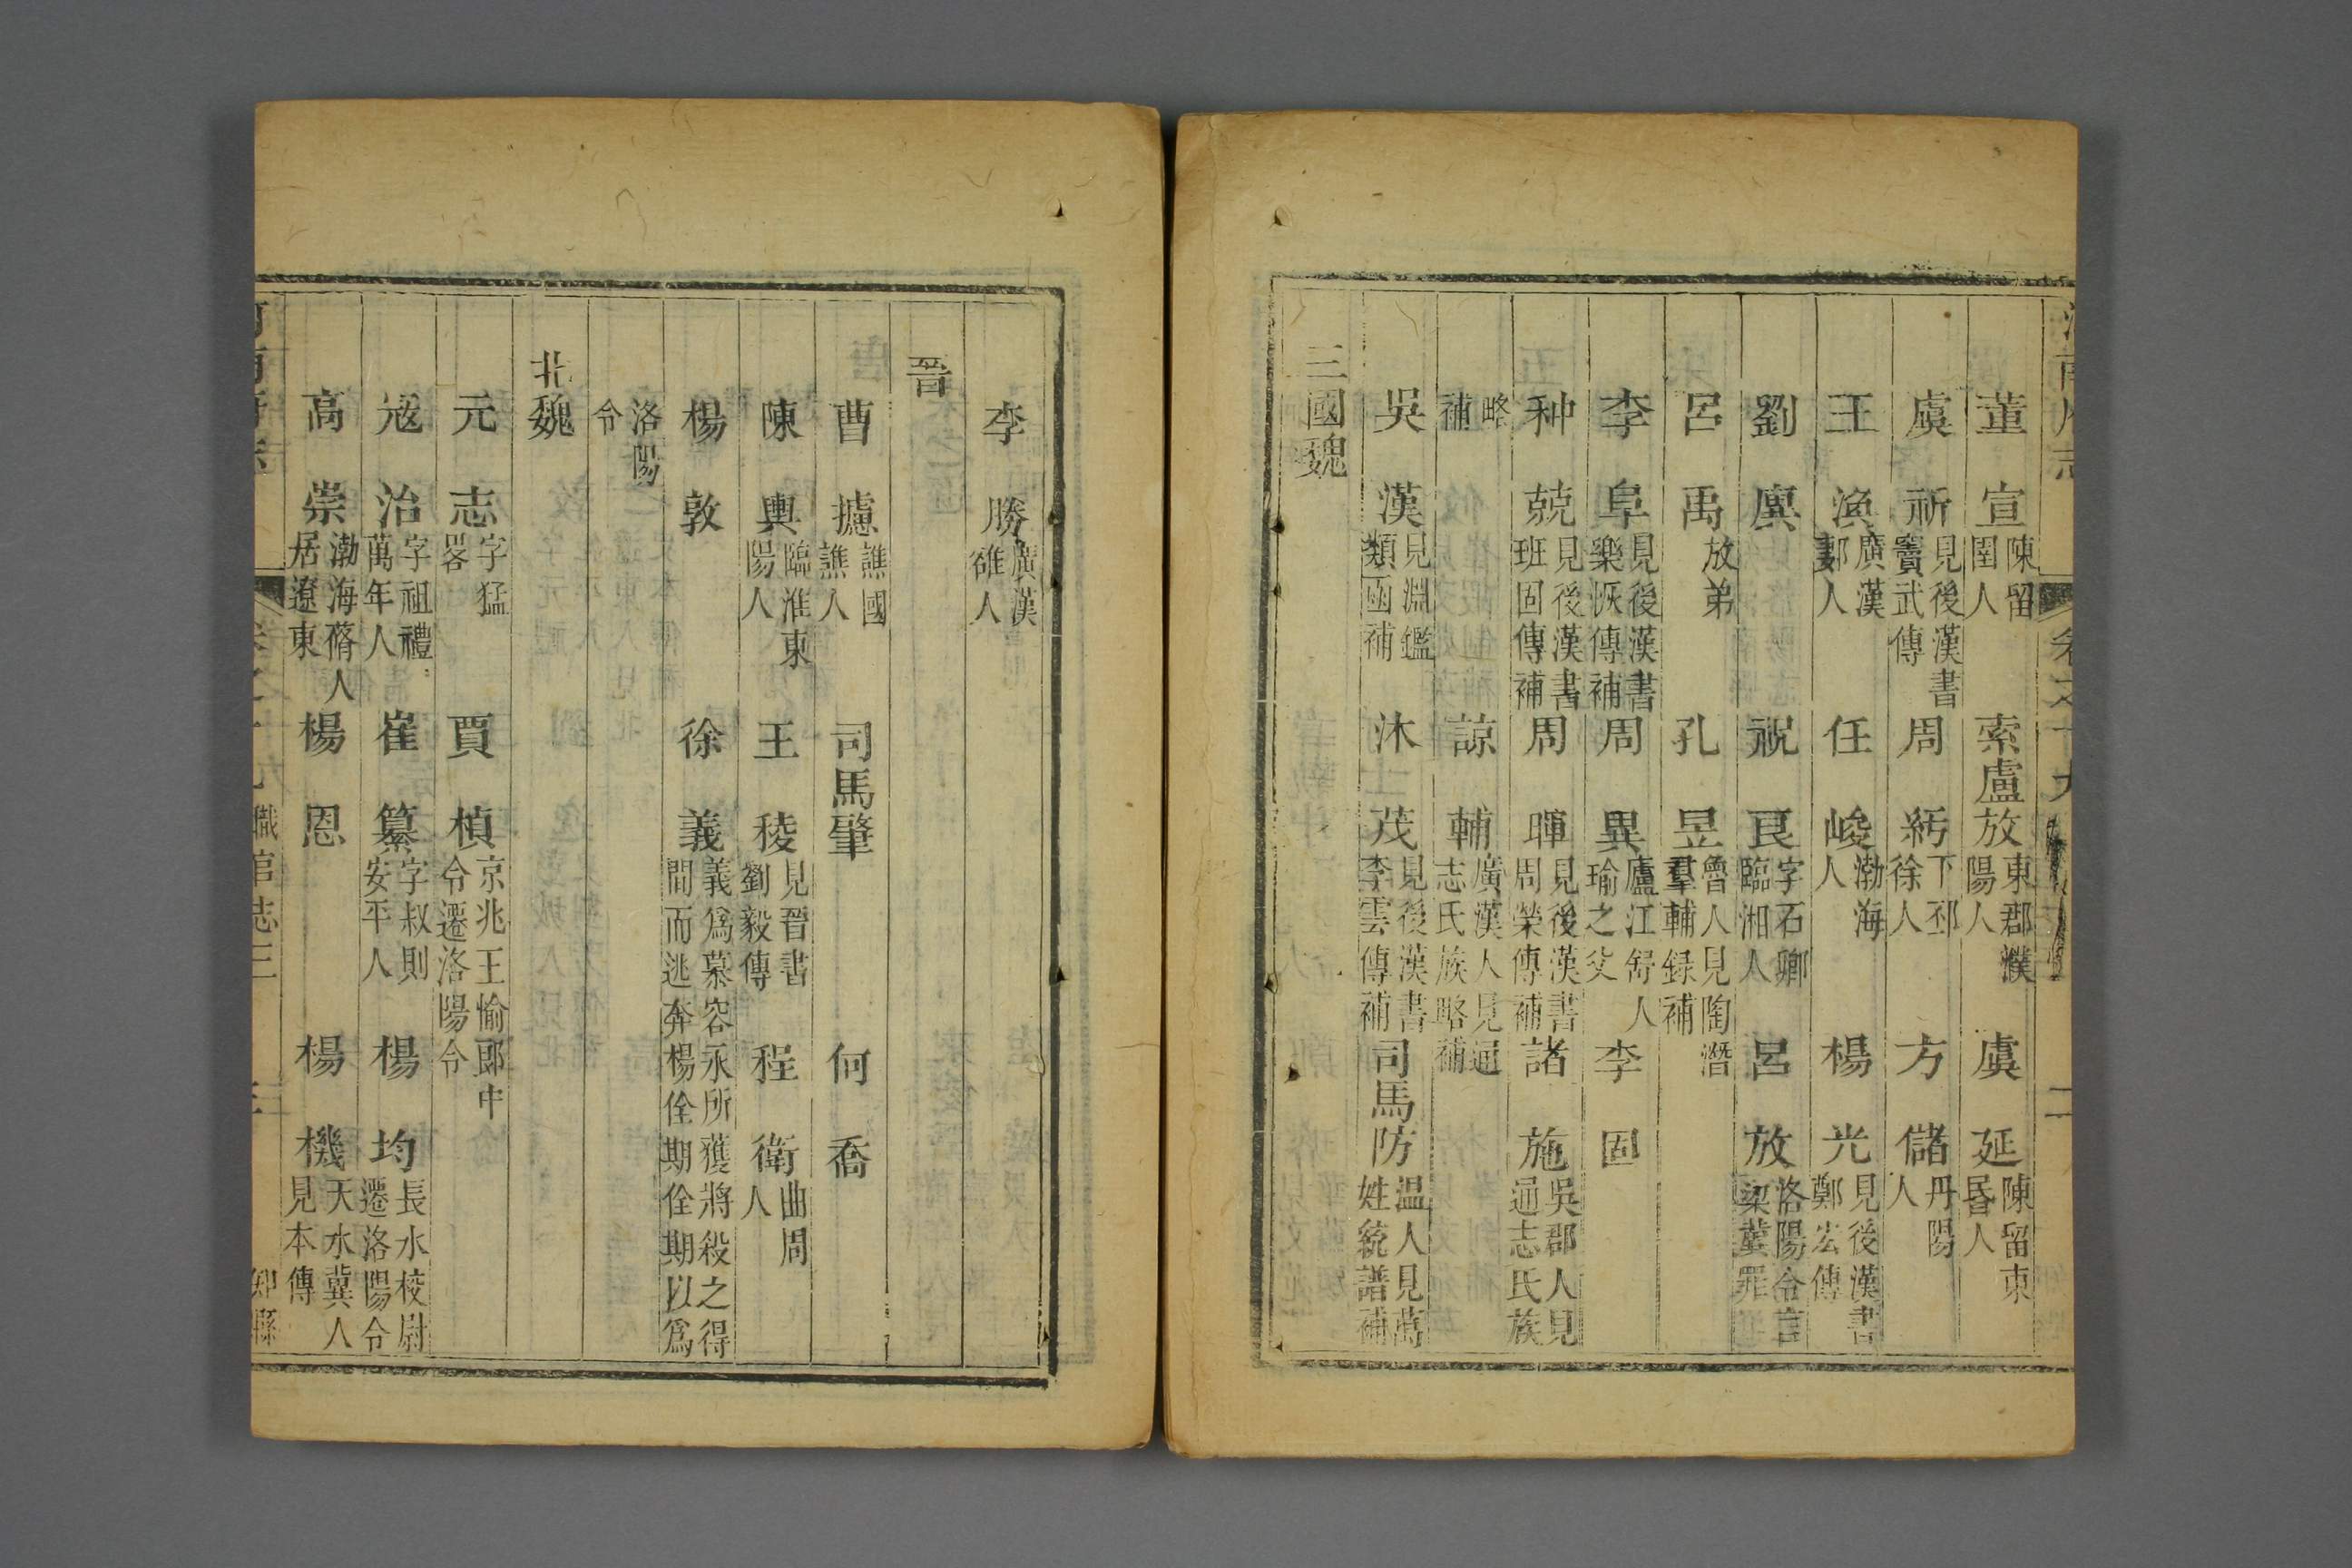 董宣陳留圉人 索盧放東郡濮陽人 虞延陳留東昏人
虞祈見後漢書竇武傳 周紆下邳徐人 方儲丹陽人
王渙廣漢郪人 任峻渤海人 楊光見後漢書鄭宏傳
劉虞 祝良字石卿臨湘人 呂放洛陽令言梁冀罪
呂禹放弟 孔昱魯人見陶潛羣輔録補
李阜見後漢書樂恢傳補 周異廬江舒人瑜之父 李固
种兢見後漢書班固傳補 周暉見後漢書周榮傳補 諸施吳郡人見通志氏族
略補 諒輔廣漢人見通志氏族略補
吳漢見淵鑑類函補 沐茂見後漢書李雲傳補 司馬防温人見萬姓統譜補
三國魏
李勝廣漢雒人
晉
曹攄譙國譙人 司馬肇 何喬
陳輿臨淮東陽人 王稜見晉書劉毅傳 程衛曲周人
楊敦 徐義義爲慕容永所獲將殺之得間而逃奔楊佺期佺期以爲
洛陽令
北魏
元志字猛畧 賈楨京兆王愉郎中令遷洛陽令
寇治字祖禮萬年人 崔纂字叔則安平人 楊均長水校尉遷洛陽令
高崇渤海蓨人居遼東 楊恩 楊機天水冀人見本傳
職官志三